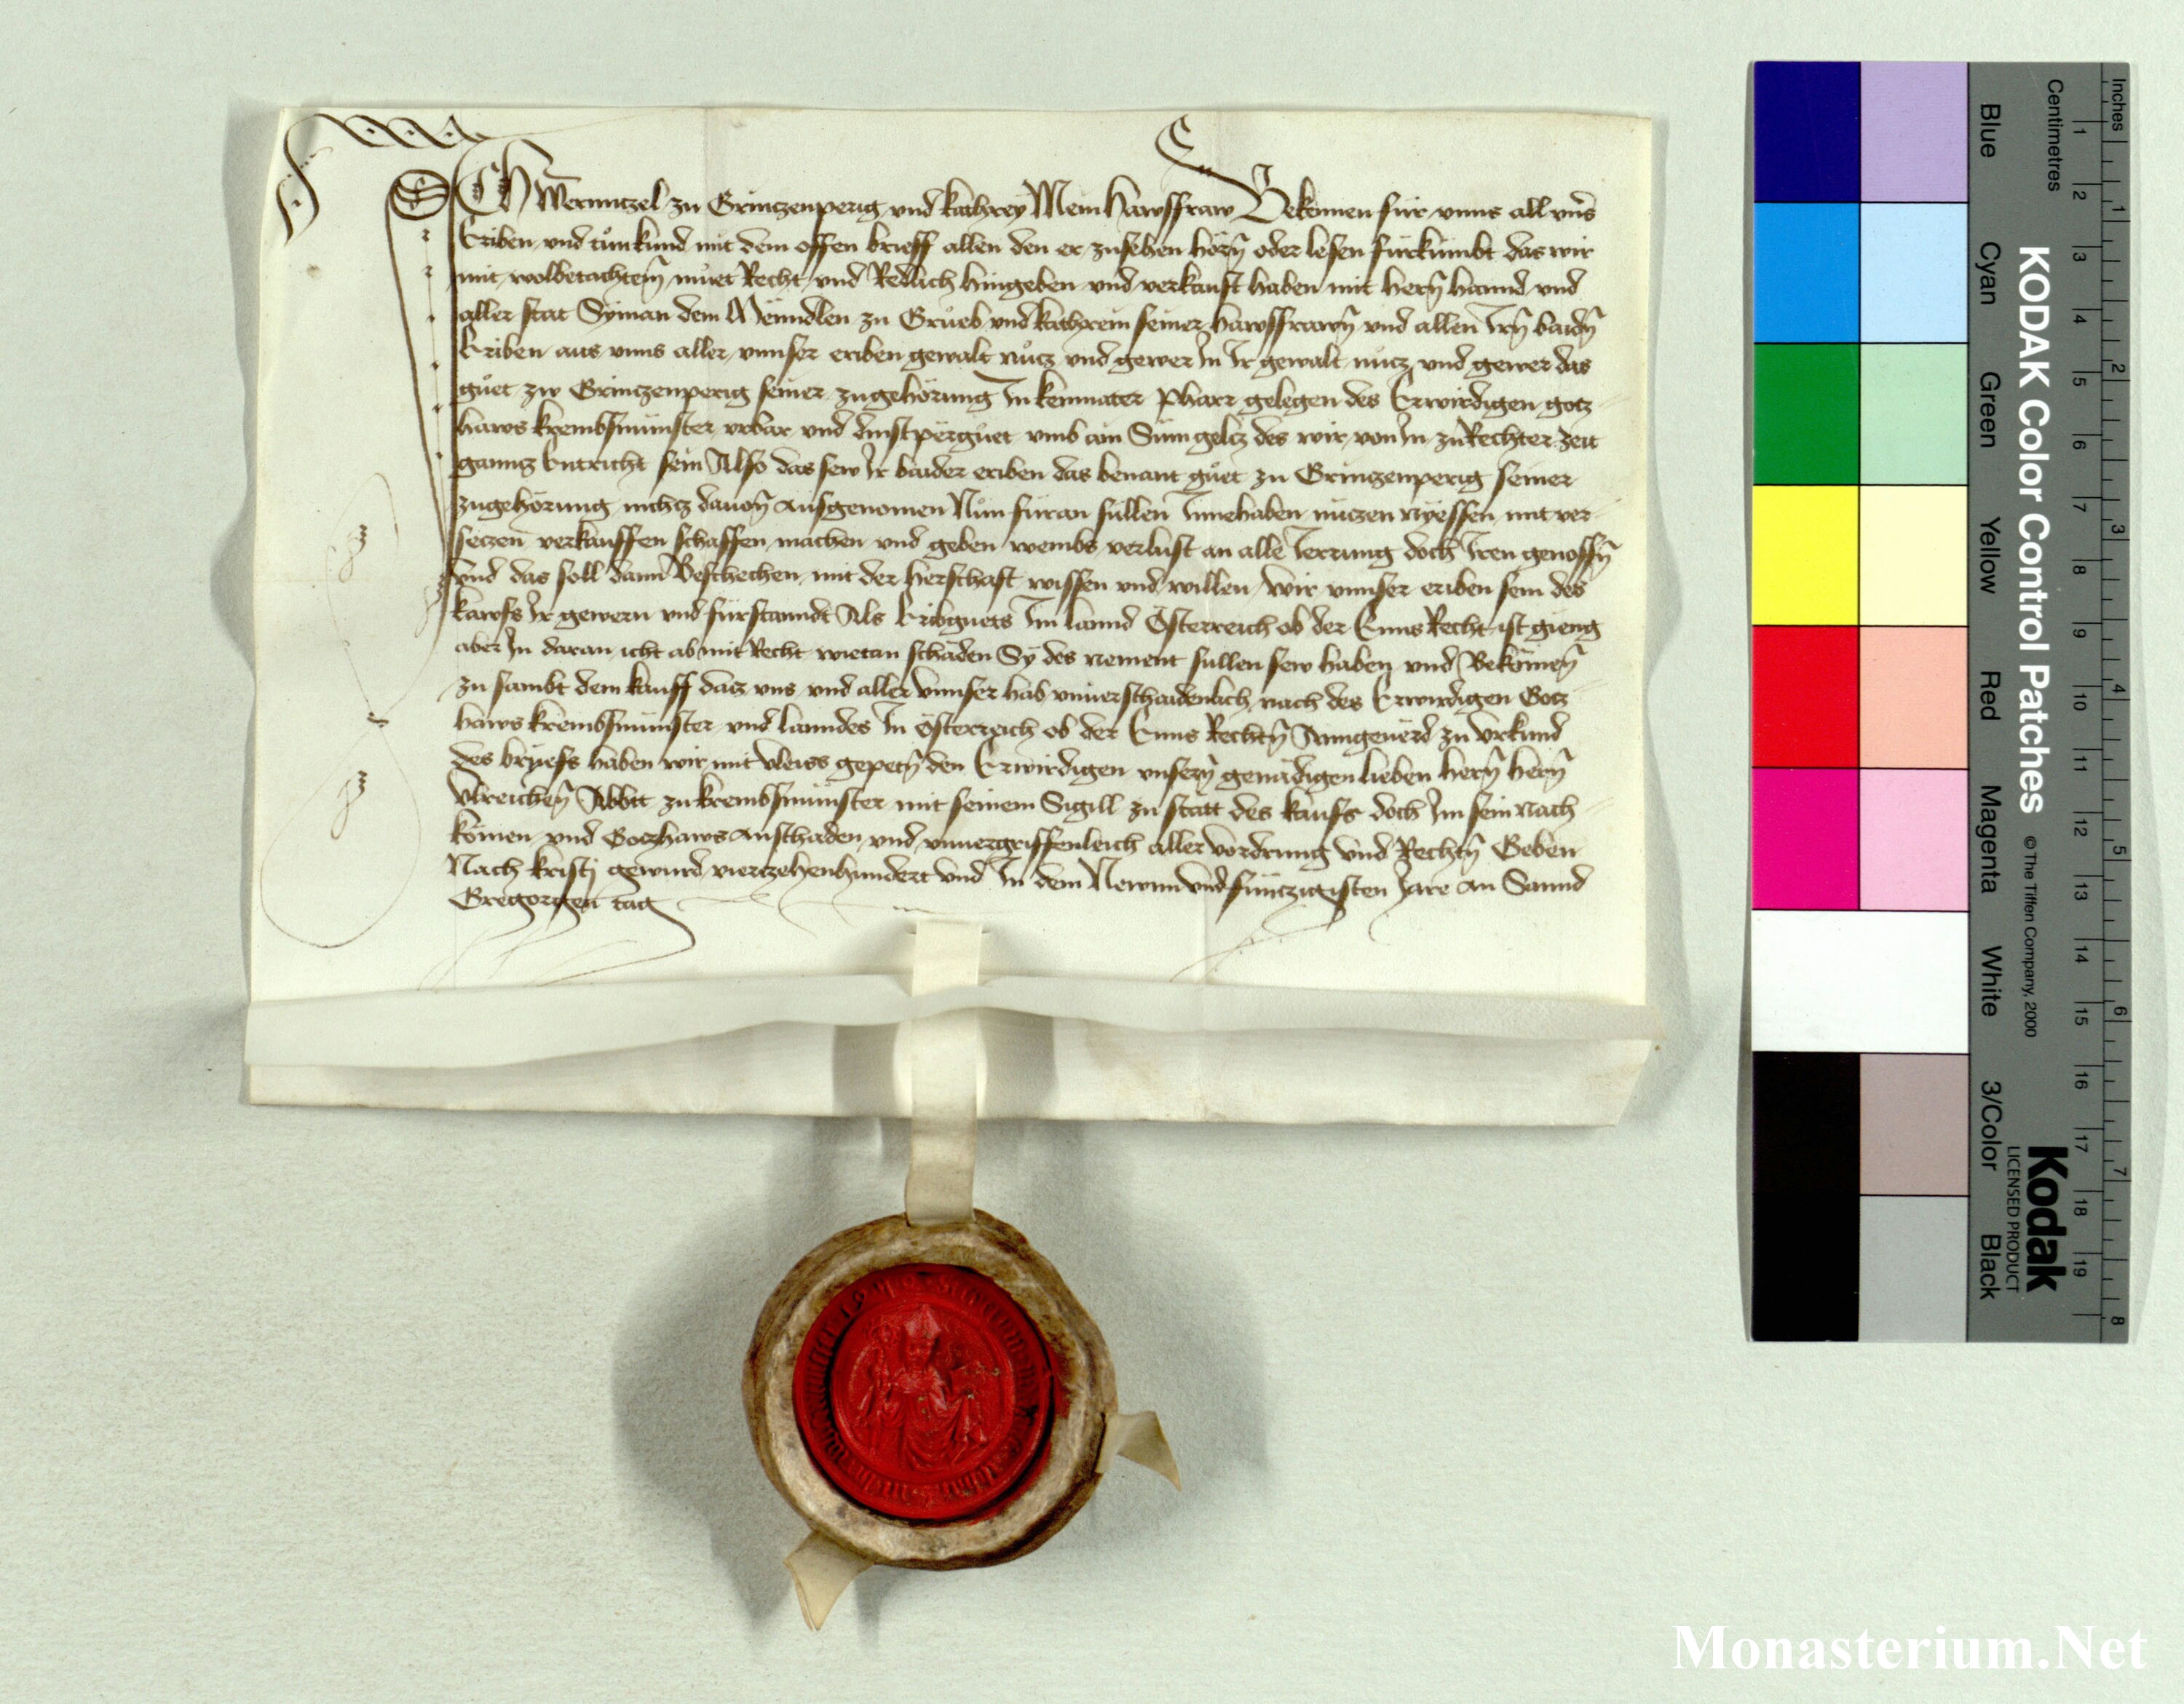 ICH Wernntzel zu Grintzenperig und kathrey Mein hawsfraw Bekennen für vnns all vnns
Eriben und tun kund mit dem offen brieff allen den er zusehen hörn oder lesen fürkumbt das wir
mit wolbetachtem muet Recht und Redlich hingeben und verkauft haben mit hern hannd und
aller stat Syman dem Menndlen zu Grueb und kathrein seiner hawsfrawn und allen Irn baidn
Eriben aus vnns aller vnnser eriben gewalt nutz und gewer In Ir gewalt nutz und gewer das
guet zw Grintzenperig seiner zugehörung In kemnater Pharr gelegen des Erwirdigen gotz
haws krembsmünster vrbar und dinstperguet vmb ain Sum geltz des wir von In zu Rechter zeit
ganntz Entricht sein Also das sew Ir baider eriben das benant guet zu Grintzenperig seiner
zugehörung nichtz dauon ausgenomen Nun füran süllen Innehaben nutzen nyessen mit ver
setzen verkauffen schaffen machen und geben wembs verlust an alle Irrung doch Iren genossn
und das soll dann Beschechen mit der herschaft wissen und willen wir vnnser eriben sein des
kawfs Ir gewern und fürstanndt Als Eribguets Im lannd Österreich ob der Enns Recht ist gieng
aber In daran icht ab mit Recht wietan schaden Sy des nement sullen sew haben und Bekömen
zu sambt dem kauff datz vns und aller vnnser hab vnuerschaidenlich nach des Erwirdigen Gotz
haws krembsmünster und lanndes In österreich ob der Enns Rechtn Anngeuerd zu vrkund
des bryefs haben wir mit vleiss gepetn den Erwirdigen vnsern genädigen lieben hern hern
Vlreichen Abbt zu krembsmünster mit seinem Sigill zu statt des kaufs doch Im sein nach
kömen und Gotzhaws an schaden und vnuergriffenleich aller vordrung und Rechtn Geben
Nach kristj gepurd vierzehenhundert und In dem Newnundfünczigisten Jare an Sannd
Gregorgen tag
KODAK Color Control Patches © The Tiffen Company, 2000
Kodak
LICENSED PRODUCT
Inches 1 2 3 4 5 6 7 8
Centimetres 1 2 3 4 5 6 7 8 9 10 11 12 13 14 15 16 17 18 19
Blue Cyan Green Yellow Red Magenta White 3/Color Black
Monasterium.Net